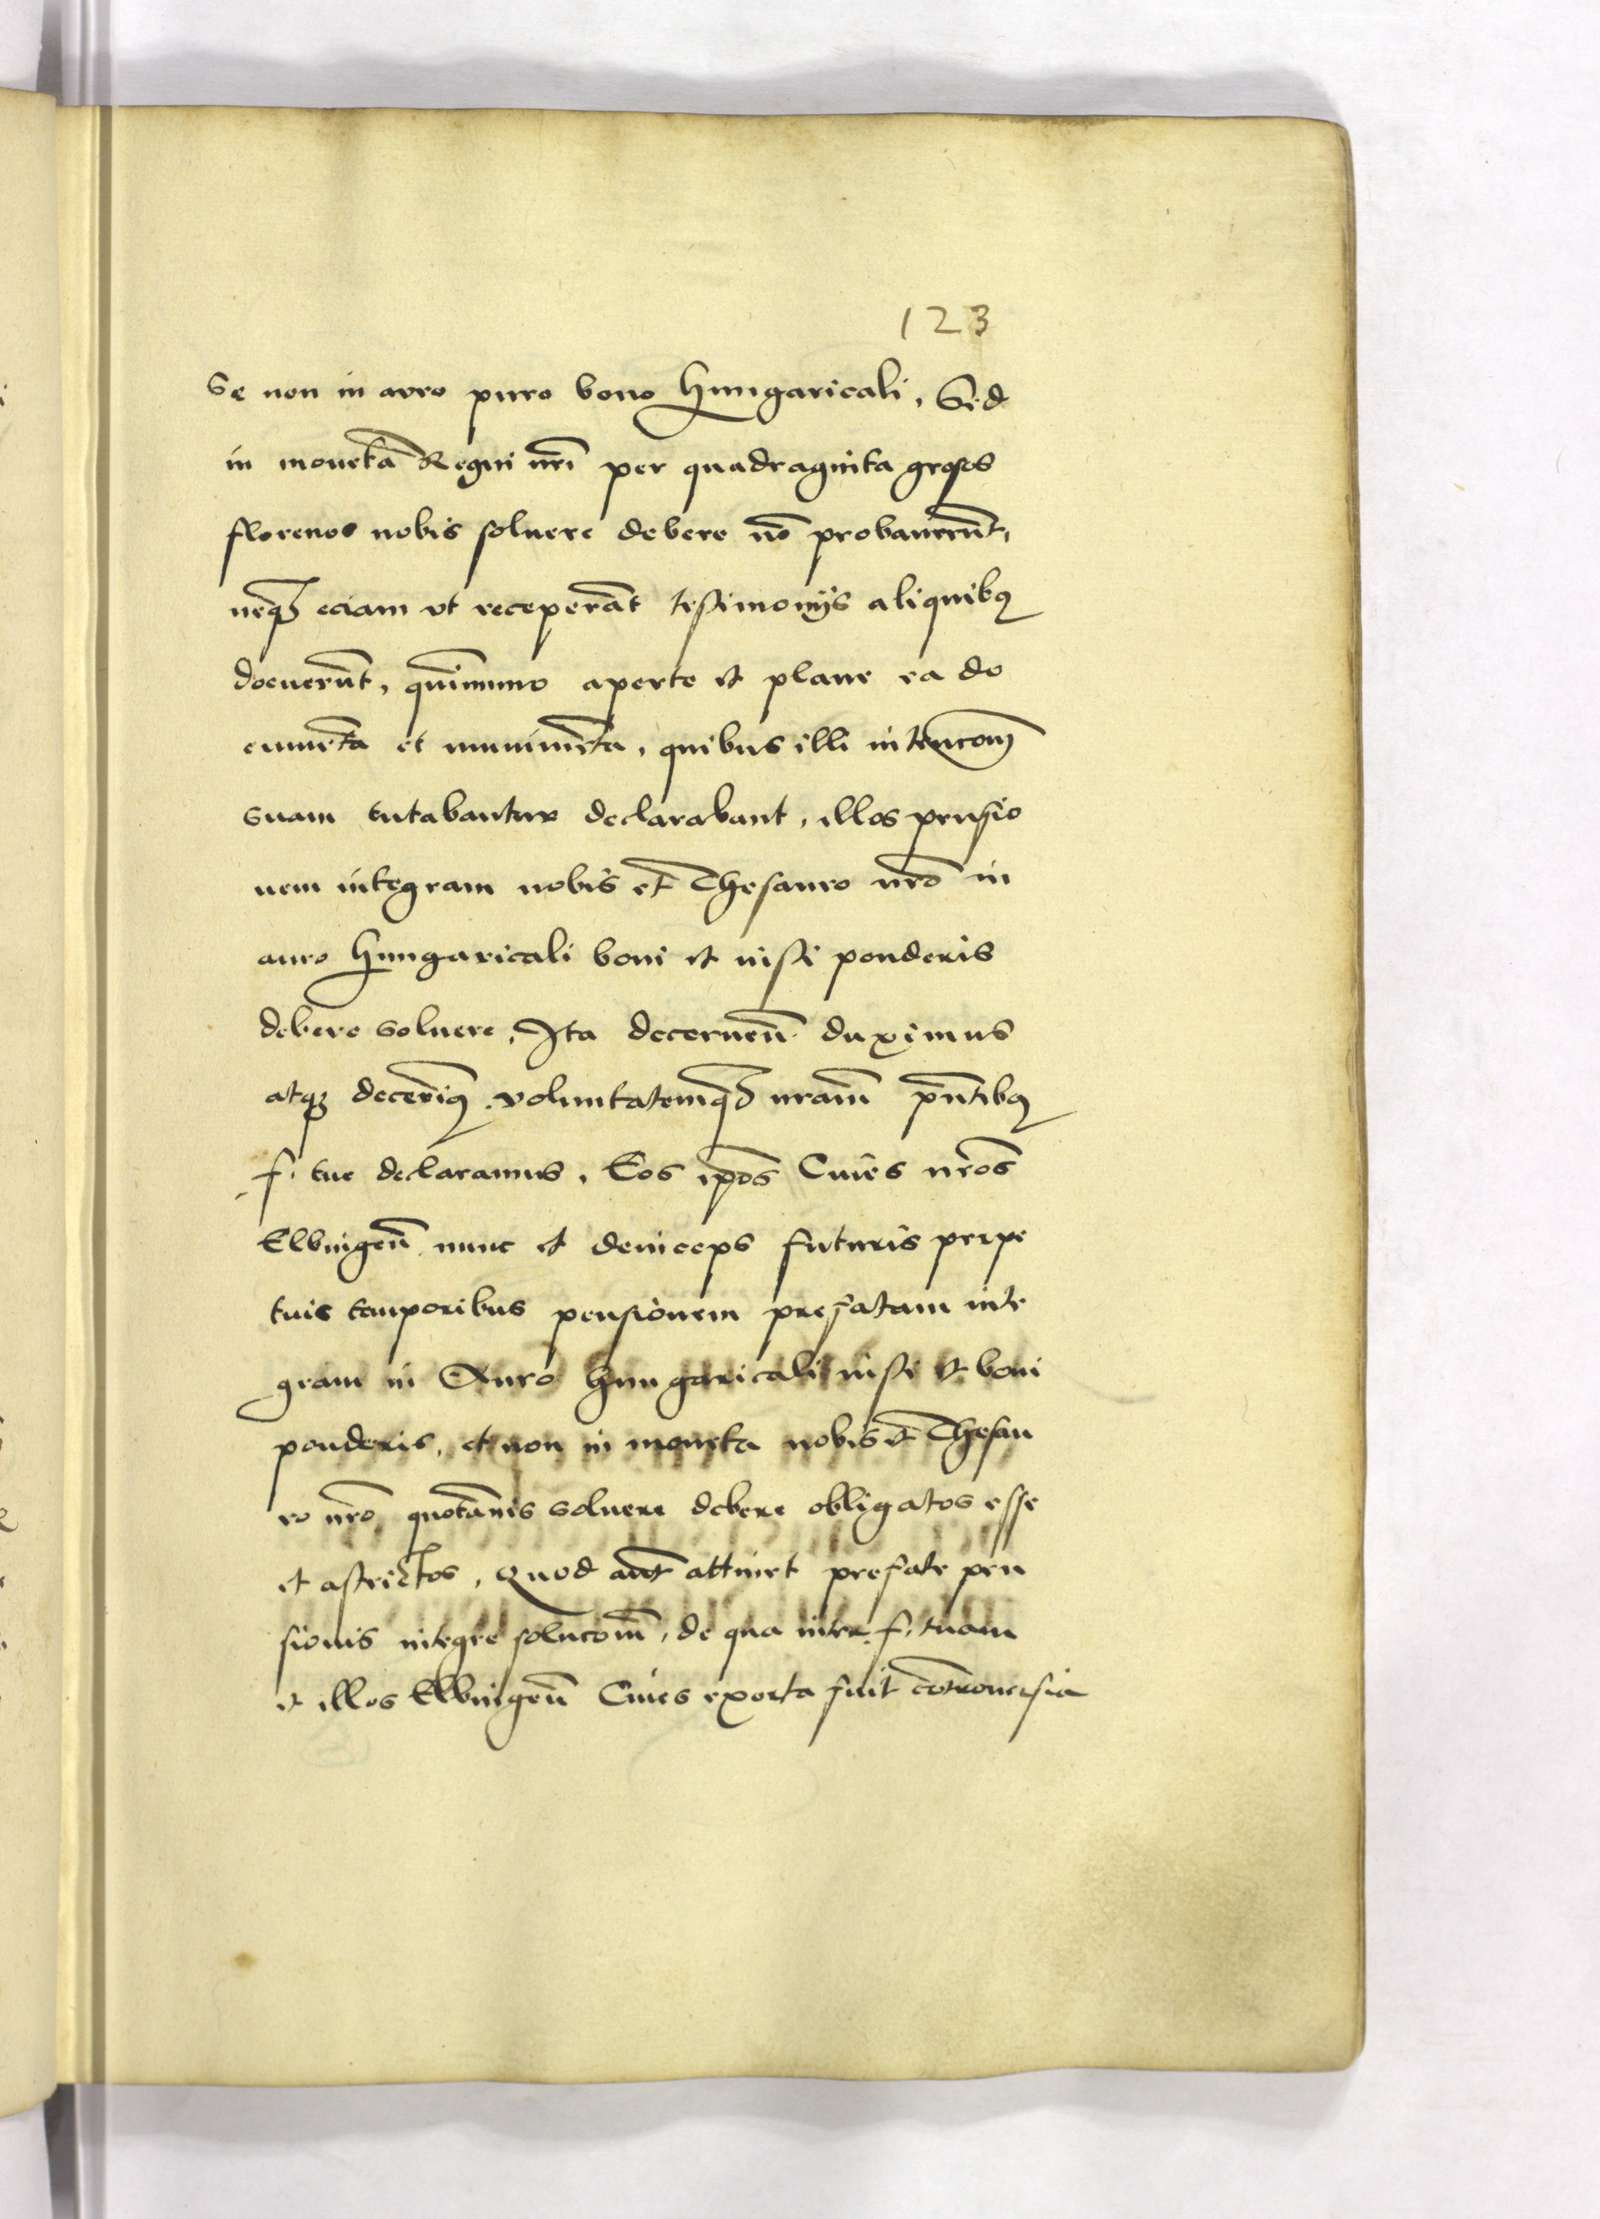 123
Se non in avro puro bono Hungaricali, Sed
in monetā Regni nrī per quadraginta grosos
florenos nobis soluere debere nō probauerūt,
neqz eciam vt receperāt testimonijs aliquibꝯ
docuerūt, quīmmo aperte et plane ea do
cumēta et munimēta, quibus illi intencom̄
suam tutabantur declarabant, illos pensio
nem integram nobis et Thesauro nrō in
auro Hungaricali boni et iusti ponderis
debere soluere, Ita decerneñ duximus
atqz decerimꝯ voluntatemqz nrām pñtibꝯ
f. tue declaramus, Eos ip̄os Ciues nrōs
Elbingeñ nunc et deinceps futuris perpe
tuis temporibus pensionem prefatam inte
gram in Auro Hungaricali iusti et boni
ponderis, et non in moneta nobis et Thesau
ro nrō quotānis soluere debere obligatos esse
et astrictos, Quod aūt attinet prefate pen
sionis integre solucom̄, de qua inter f. tuam
et illos Elbingeñ Ciues exorta fuit cōtrouersia